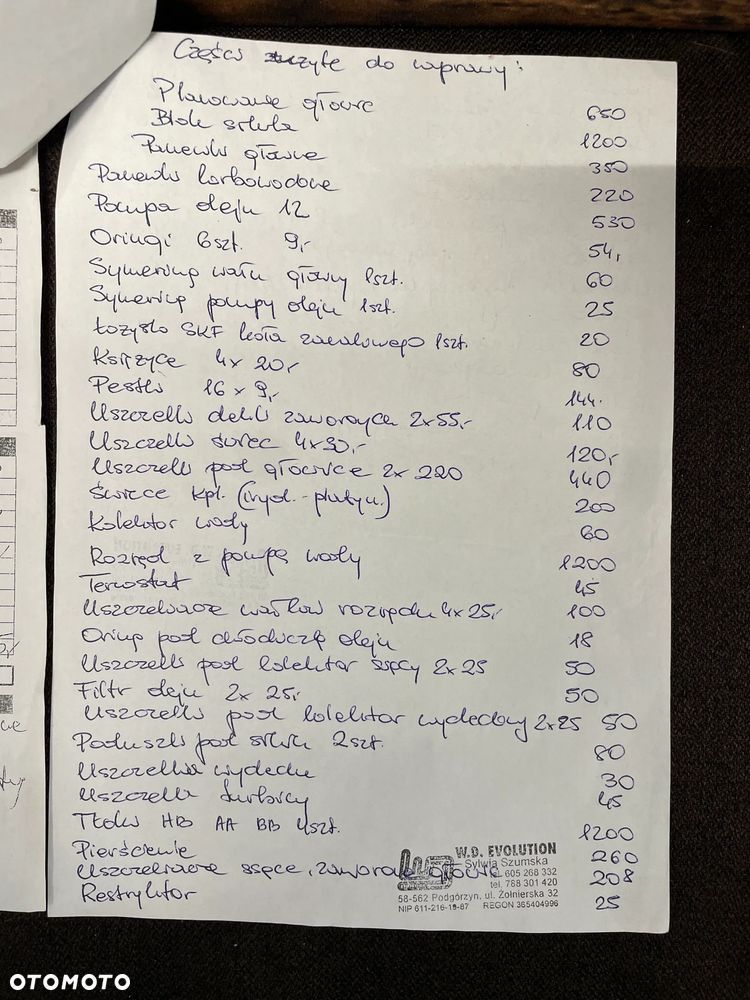 Części zużyte do naprawy:
Planowanie głowic 650
Blok silnika 1200
Panewki główne 350
Panewki korbowodowe 220
Pompa oleju 12 530
Oringi 6szt. 9,- 54,
Symering wału główny 1szt. 60
Symering pompy oleju 1szt. 25
Łożysko SKF koła zamachowego 1szt. 20
Księżyce 4x 20,- 80
Pestki 16 x 9,- 144.
Uszczelki dekli zaworowych 2x55,- 110
Uszczelki świec 4x30,- 120,-
Uszczelki pod głowice 2x 220 440
Świece kpl. (iryd.-platyn.) 200
Kolektor wody 60
Rozrząd z pompą wody 1200
Termostat 45
Uszczelniacze wałków rozrządu 4x25,- 100
Oring pod chłodniczkę oleju 18
Uszczelki pod kolektor ssący 2x25 50
Filtr oleju 2x 25,- 50
Uszczelki pod kolektor wydechowy 2x25 50
Poduszki pod silnik 2szt. 80
Uszczelka wydechu 30
Uszczelka turbiny 45
Tłoki HB AA BB 4szt. 1200
Pierścienie 260
Uszczelniacze ssące, zaworowe 208
Restryktor 25
W.D. EVOLUTION
Sylwia Szumska
605 268 332
tel. 788 301 420
58-562 Podgórzyn, ul. Żołnierska 32
NIP 611-216-19-87 REGON 365404996
OTOMOTO